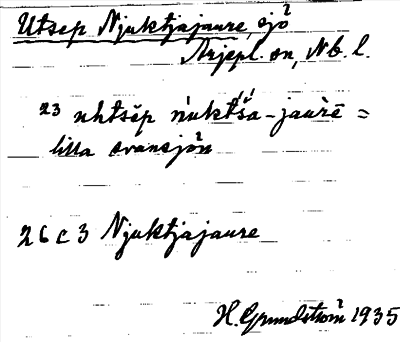 Utsep Njuktjajaure, sjö
Arjepl. sn, Nb. l.
23 uhtsēp ńukt́š́a-jaùrē =
lilla svansjön
26 c 3 Njuktjajaure
H. Grundström 1935